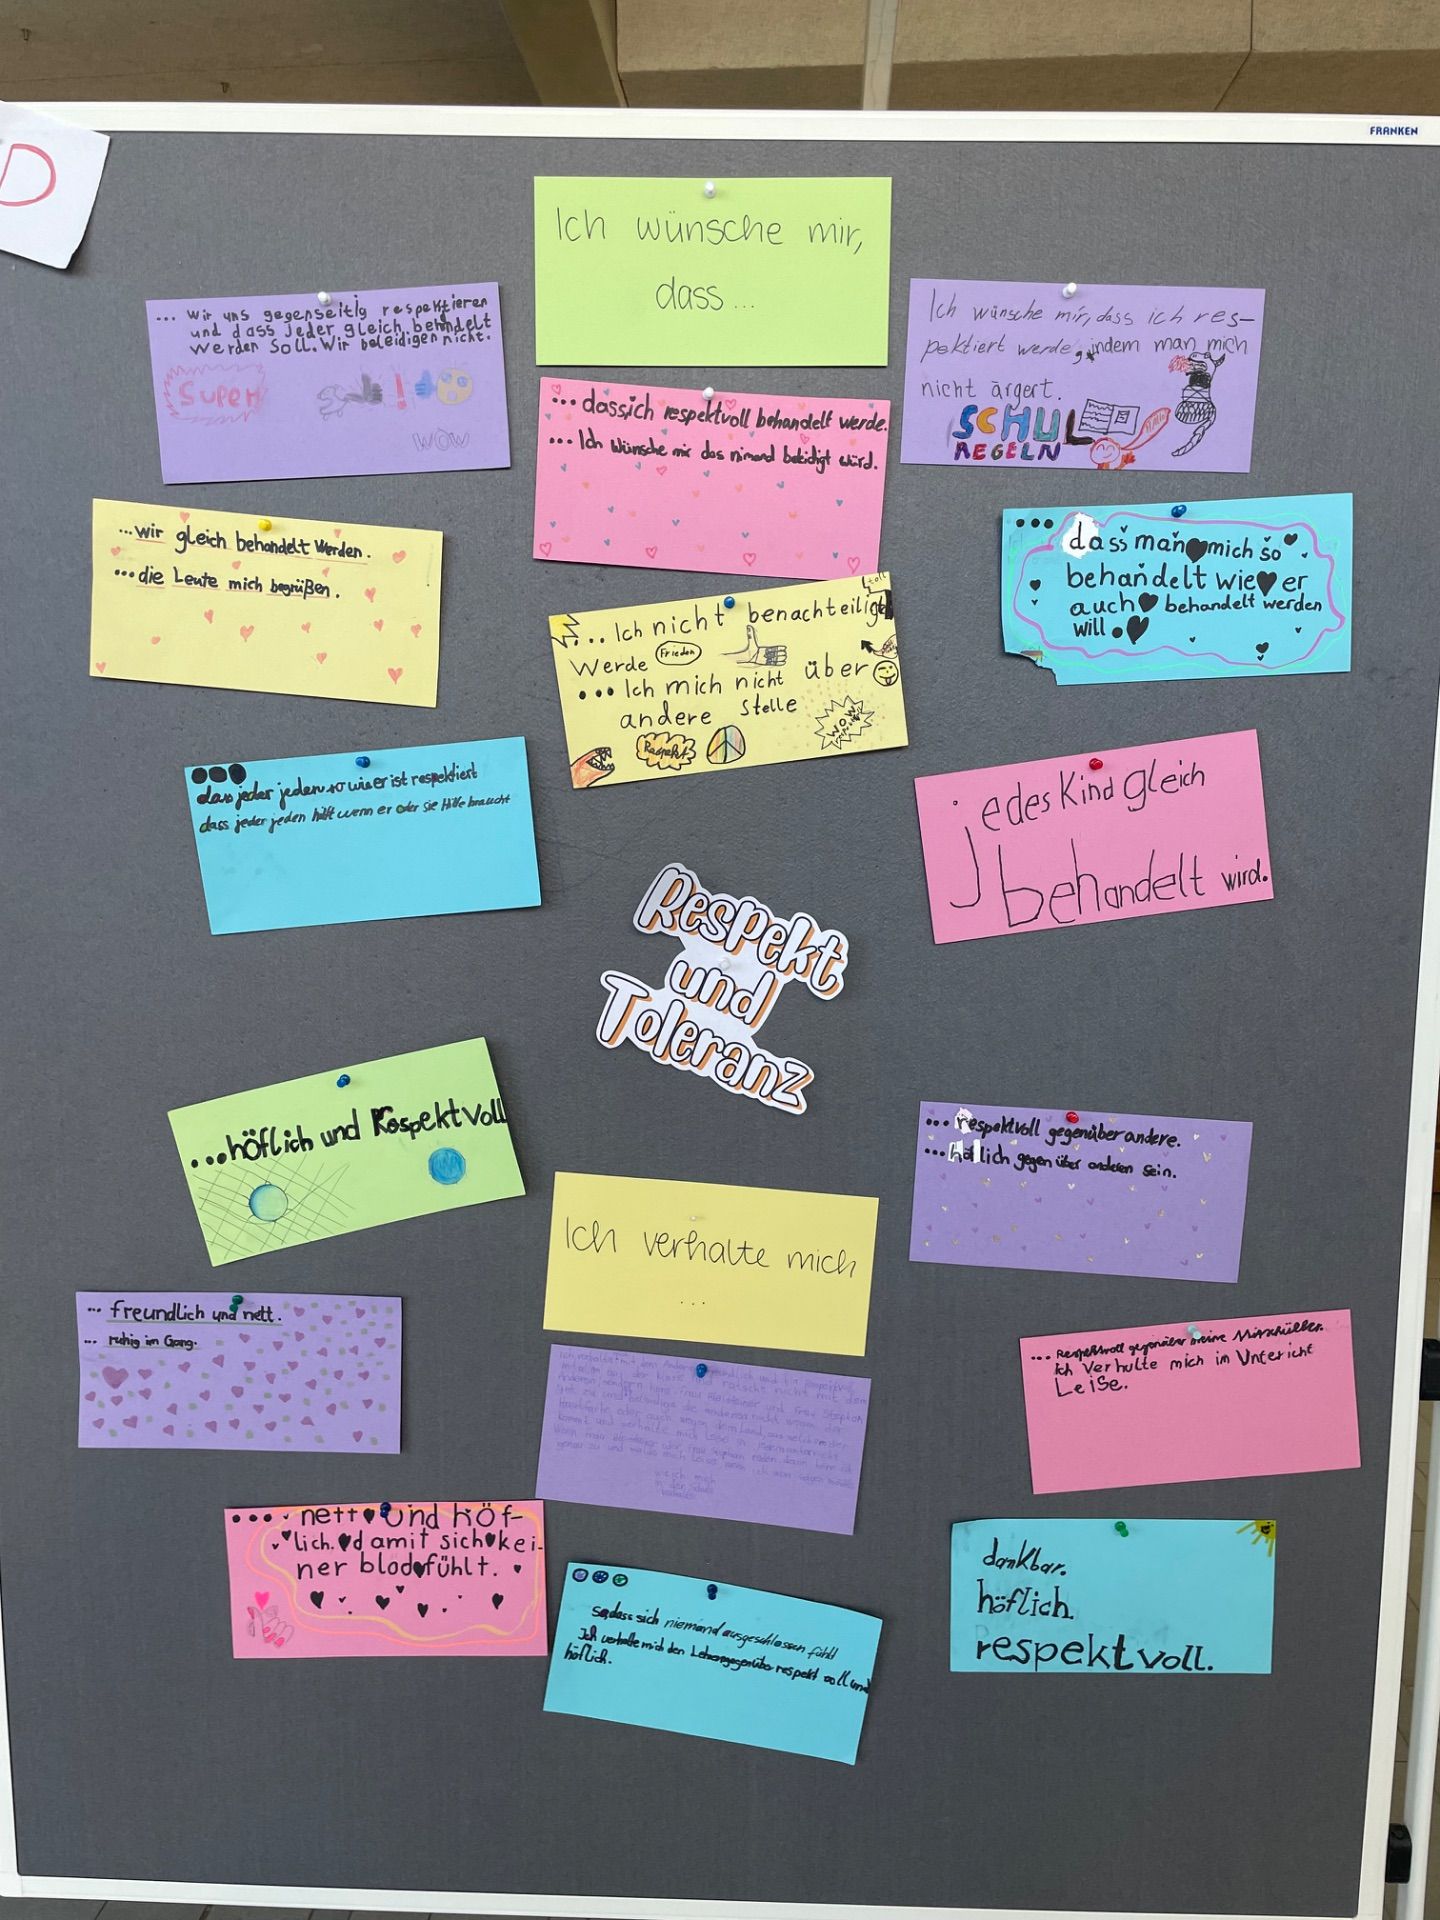 FRANKEN
D
Ich wünsche mir,
dass...
... Wir uns gegenseitig respektieren
und dass jeder gleich behandelt
werden soll. Wir beleidigen nicht.
SUPER
!
WOW
... dass ich respektvoll behandelt werde.
... Ich wünsche mir das nimand beleidigt würd.
Ich wünsche mir, dass ich res-
pektiert werde, indem man mich
nicht ärgert.
SCHUL
REGELN
...wir gleich behandelt werden.
...die Leute mich begrüßen.
... Ich nicht benachteiligt
werde
Frieden
... Ich mich nicht über
andere stelle
Respekt
WOW
toll
... dass man mich so
behandelt wie er
auch behandelt werden
will.
...
dass jeder jeden so wie er ist respektiert
dass jeder jeden hilft wenn er oder sie Hilfe braucht
jedes Kind gleich
behandelt wird.
Respekt
und
Toleranz
...höflich und Respektvoll
... respektvoll gegenüber andere.
... höflich gegenüber anderen sein.
Ich verhalte mich
...
... freundlich und nett.
... ruhig im Gang.
... Respektvoll gegenüber meine Mitschüller.
Ich verhalte mich im Unterricht
Leise.
wie ich mich
in der Schule
... nett und höf-
lich. damit sich kei-
ner blöd fühlt.
...
sodass sich niemand ausgeschlossen fühlt
Ich verhalte mich den Lehrern gegenüber respektvoll und
höflich.
dankbar.
höflich.
respektvoll.